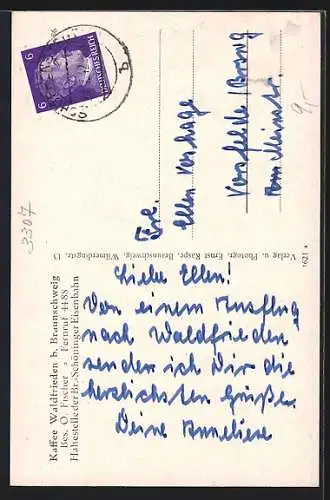 Kaffee Waldfrieden b. Braunschweig
Bes. O. Fischer · Fernruf 4488
Haltestelle der Br.-Schöninger Eisenbahn
Liebe Ellen!
Von einem Ausflug
nach Waldfrieden
senden ich Dir die
herzlichsten Grüße.
Deine Anneliese
Verlag u. Photogr. Ernst Kaspr. Braunschweig, Wilmerdingstr. 13
1621
Frl.
Ellen Vorhage
Vorsfelde / Braug
Am Meinstr.
6 6
3307
9,-